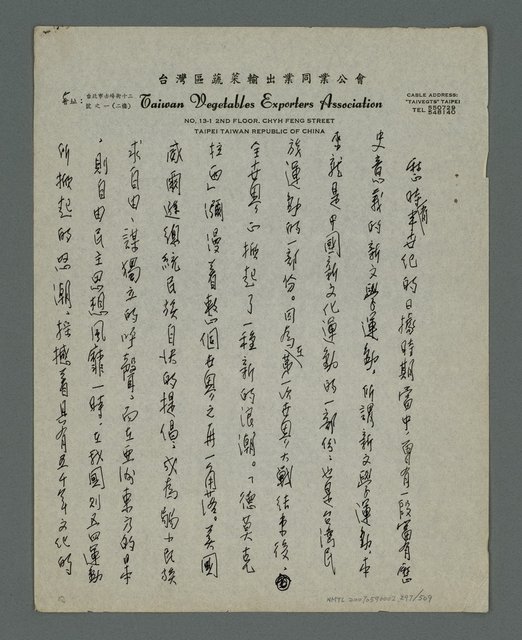 台灣區蔬菜輸出業同業公會
會址：台北市赤峰街十三號之一（二樓）
Taiwan Vegetables Exporters Association
NO. 13-1 2ND FLOOR. CHYH FENG STREET
TAIPEI TAIWAN REPUBLIC OF CHINA
CABLE ADDRESS:
"TAIVEGTS" TAIPEI
TEL 550729
548140
整個半世紀的日據時期當中，曾有一段富有歷
史意義的新文學運動，所謂新文學運動，本
來就是中國新文化運動的一部份，也是台湾民
族運動的一部份。因為在第一次世界大戰結束後，
全世界正掀起了一種新的浪潮。「德莫克
拉西」瀰漫着整個世界之每一角落。美國
威爾遜總統民族自決的提倡，成為弱小民族
求自由、謀獨立的呼聲，而在亞洲東方的日本
，則自由民主思想風靡一時，在我國則五四運動
所掀起的思潮，搖撼着具有五千年文化的
NMTL 20070590002 297/509